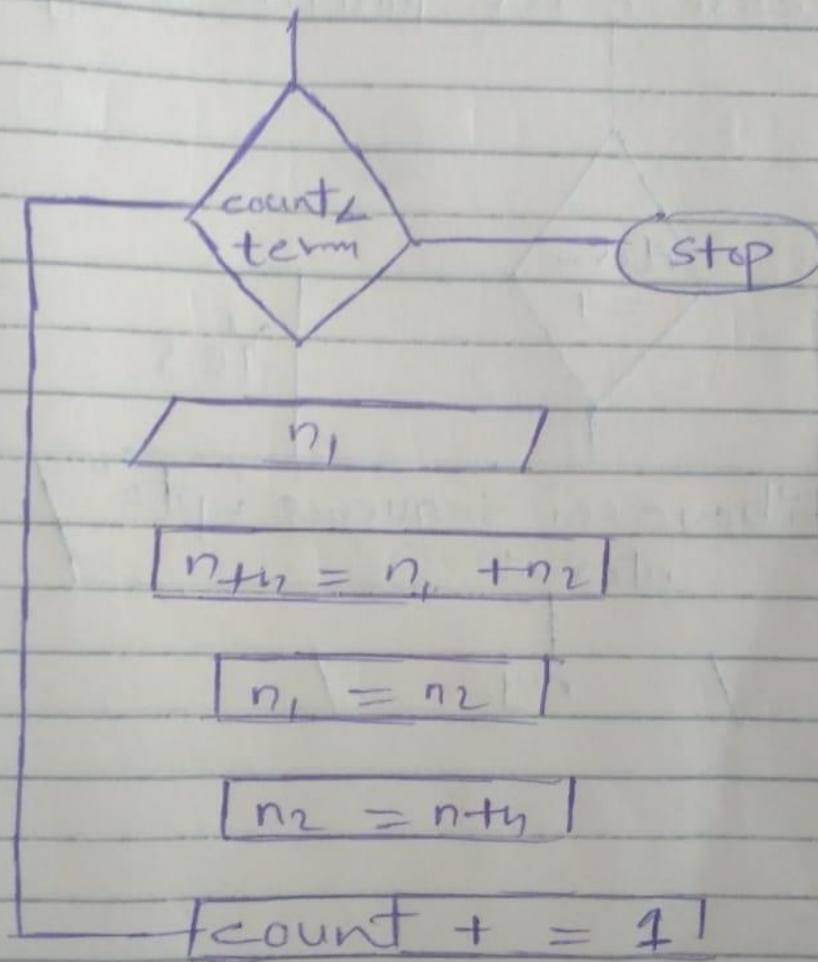 count <
term
stop
n1
nth = n1 + n2
n1 = n2
n2 = nth
count + = 1